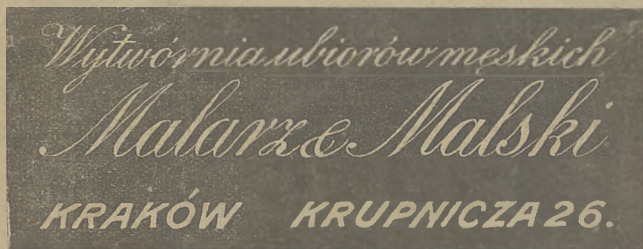 Wytwórnia ubiorów męskich
Malarz & Malski
KRAKÓW KRUPNICZA 26.